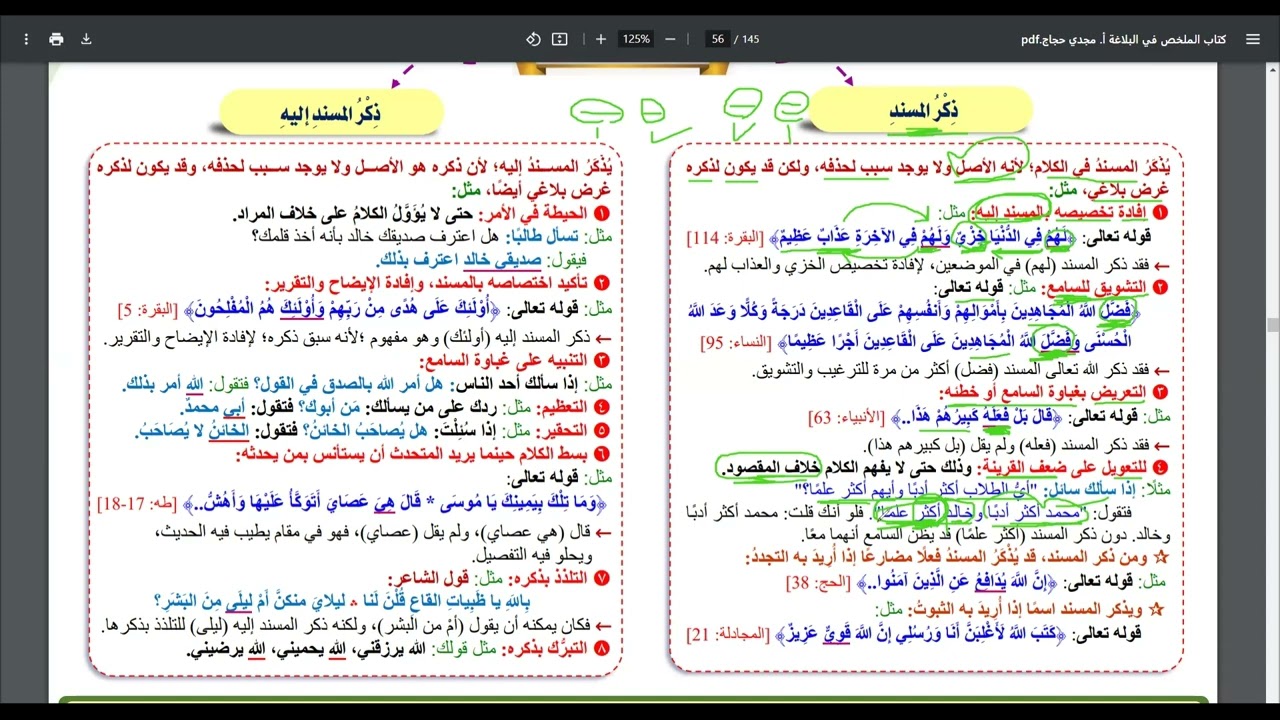 كتاب الملخص في البلاغة أ. مجدي حجاج.pdf
56 / 145
125%
ذِكْرُ المسندِ
يُذْكَرُ المسندُ في الكلام؛ لأنه الأصل ولا يوجد سبب لحذفه، ولكن قد يكون لذكره
غرض بلاغي، مثل:
❶ إفادة تخصيصه بالمسند إليه: مثل:
قوله تعالى: ﴿لَهُمْ فِي الدُّنْيَا خِزْيٌ وَلَهُمْ فِي الآخِرَةِ عَذَابٌ عَظِيمٌ﴾ [البقرة: 114]
← فقد ذكر المسند (لهم) في الموضعين، لإفادة تخصيص الخزي والعذاب لهم.
❷ التشويق للسامع: مثل: قوله تعالى:
﴿فَضَّلَ اللهُ المُجَاهِدِينَ بِأَمْوَالِهِمْ وَأَنْفُسِهِمْ عَلَى القَاعِدِينَ دَرَجَةً وَكُلًّا وَعَدَ اللهُ
الْحُسْنَى وَفَضَّلَ اللهُ المُجَاهِدِينَ عَلَى القَاعِدِينَ أَجْرًا عَظِيمًا﴾ [النساء: 95]
← فقد ذكر الله تعالى المسند (فضل) أكثر من مرة للترغيب والتشويق.
❸ التعريض بغباوة السامع أو خطئه:
مثل: قوله تعالى: ﴿قَالَ بَلْ فَعَلَهُ كَبِيرُهُمْ هَذَا..﴾ [الأنبياء: 63]
← فقد ذكر المسند (فعله) ولم يقل (بل كبيرهم هذا).
❹ للتعويل على ضعف القرينة: وذلك حتى لا يفهم الكلام خلاف المقصود.
مثلًا: إذا سألك سائل: "أيُّ الطلاب أكثر أدبًا وأيهم أكثر علمًا؟"
فتقول: "محمد أكثر أدبًا وخالد أكثر علمًا". فلو أنك قلت: محمد أكثر أدبًا
وخالد. دون ذكر المسند (أكثر علمًا) قد يظن السامع أنهما معًا.
☆ ومن ذكر المسند، قد يُذْكَرُ المسندُ فعلًا مضارعًا إذا أريدَ به التجددُ:
مثل: قوله تعالى: ﴿إِنَّ اللهَ يُدَافِعُ عَنِ الَّذِينَ آمَنُوا..﴾ [الحج: 38]
☆ ويذكر المسند اسمًا إذا أريدَ به الثبوتُ: مثل:
قوله تعالى: ﴿كَتَبَ اللهُ لَأَغْلِبَنَّ أَنَا وَرُسُلِي إِنَّ اللهَ قَوِيٌّ عَزِيزٌ﴾ [المجادلة: 21]
ذِكْرُ المسندِ إليهِ
يُذْكَرُ المسندُ إليه؛ لأن ذكره هو الأصل ولا يوجد سبب لحذفه، وقد يكون لذكره
غرض بلاغي أيضًا، مثل:
❶ الحيطة في الأمر: حتى لا يُؤَوَّلُ الكلامُ على خلاف المراد.
مثل: تسأل طالبًا: هل اعترف صديقك خالد بأنه أخذ قلمك؟
فيقول: صديقي خالد اعترف بذلك.
❷ تأكيد اختصاصه بالمسند، وإفادة الإيضاح والتقرير:
مثل: قوله تعالى: ﴿أُوْلَئِكَ عَلَى هُدًى مِنْ رَبِّهِمْ وَأُوْلَئِكَ هُمُ المُفْلِحُونَ﴾ [البقرة: 5]
← ذكر المسند إليه (أولئك) وهو مفهوم ؛لأنه سبق ذكره؛ لإفادة الإيضاح والتقرير.
❸ التنبيه على غباوة السامع:
مثل: إذا سألك أحد الناس: هل أمر الله بالصدق في القول؟ فتقول: الله أمر بذلك.
❹ التعظيم: مثل: ردك على من يسألك: مَن أبوك؟ فتقول: أبي محمدٌ.
❺ التحقير: مثل: إذا سُئِلْتَ: هل يُصاحَبُ الخائنُ؟ فتقول: الخائنُ لا يُصَاحَبُ.
❻ بسط الكلام حينما يريد المتحدث أن يستأنس بمن يحدثه:
مثل: قوله تعالى:
﴿وَمَا تِلْكَ بِيَمِينِكَ يَا مُوسَى * قَالَ هِيَ عَصَايَ أَتَوَكَّأُ عَلَيْهَا وَأَهُشُّ..﴾ [طه: 17-18]
← قال (هي عصاي)، ولم يقل (عصاي)، فهو في مقام يطيب فيه الحديث،
ويحلو فيه التفصيل.
❼ التلذذ بذكره: مثل: قول الشاعر:
بِاللهِ يا ظَبِياتِ القاعِ قُلْنَ لَنا * ليلايَ منكنَّ أمْ ليلَى مِنَ البَشَرِ؟
← فكان يمكنه أن يقول (أم من البشر)، ولكنه ذكر المسند إليه (ليلى) للتلذذ بذكرها.
❽ التبرُّك بذكره: مثل قولك: الله يرزقني، الله يحميني، الله يرضيني.